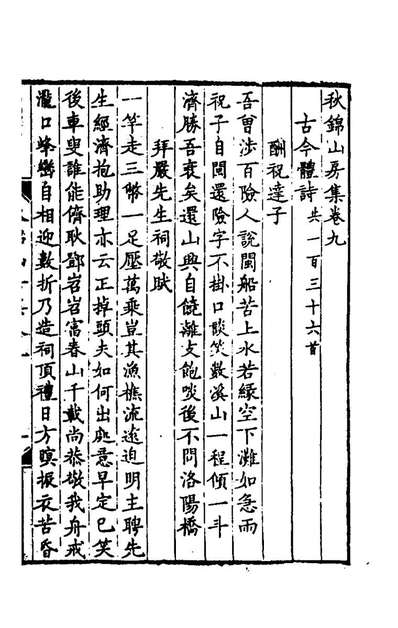 秋錦山房集卷九
古今體詩共一百三十六首
酬祝達子
吾曾涉百險人說閩船苦上水若緣空下灘如急雨
祝子自閩還險字不掛口談笑數溪山一程傾一斗
濟勝吾衰矣還山興自饒離支飽啖後不問洛陽橋
拜嚴先生祠敬賦
一竿走三幣一足壓萬乘豈其漁樵流遠迫明主聘先
生經濟抱助理亦云正掉頭夫如何出處意早定已笑
後車叟誰能儕耿鄧岧岧富春山千載尚恭敬我舟戒
瀧口峰巒自相迎數折乃造祠頂禮日方暝振衣苦昏